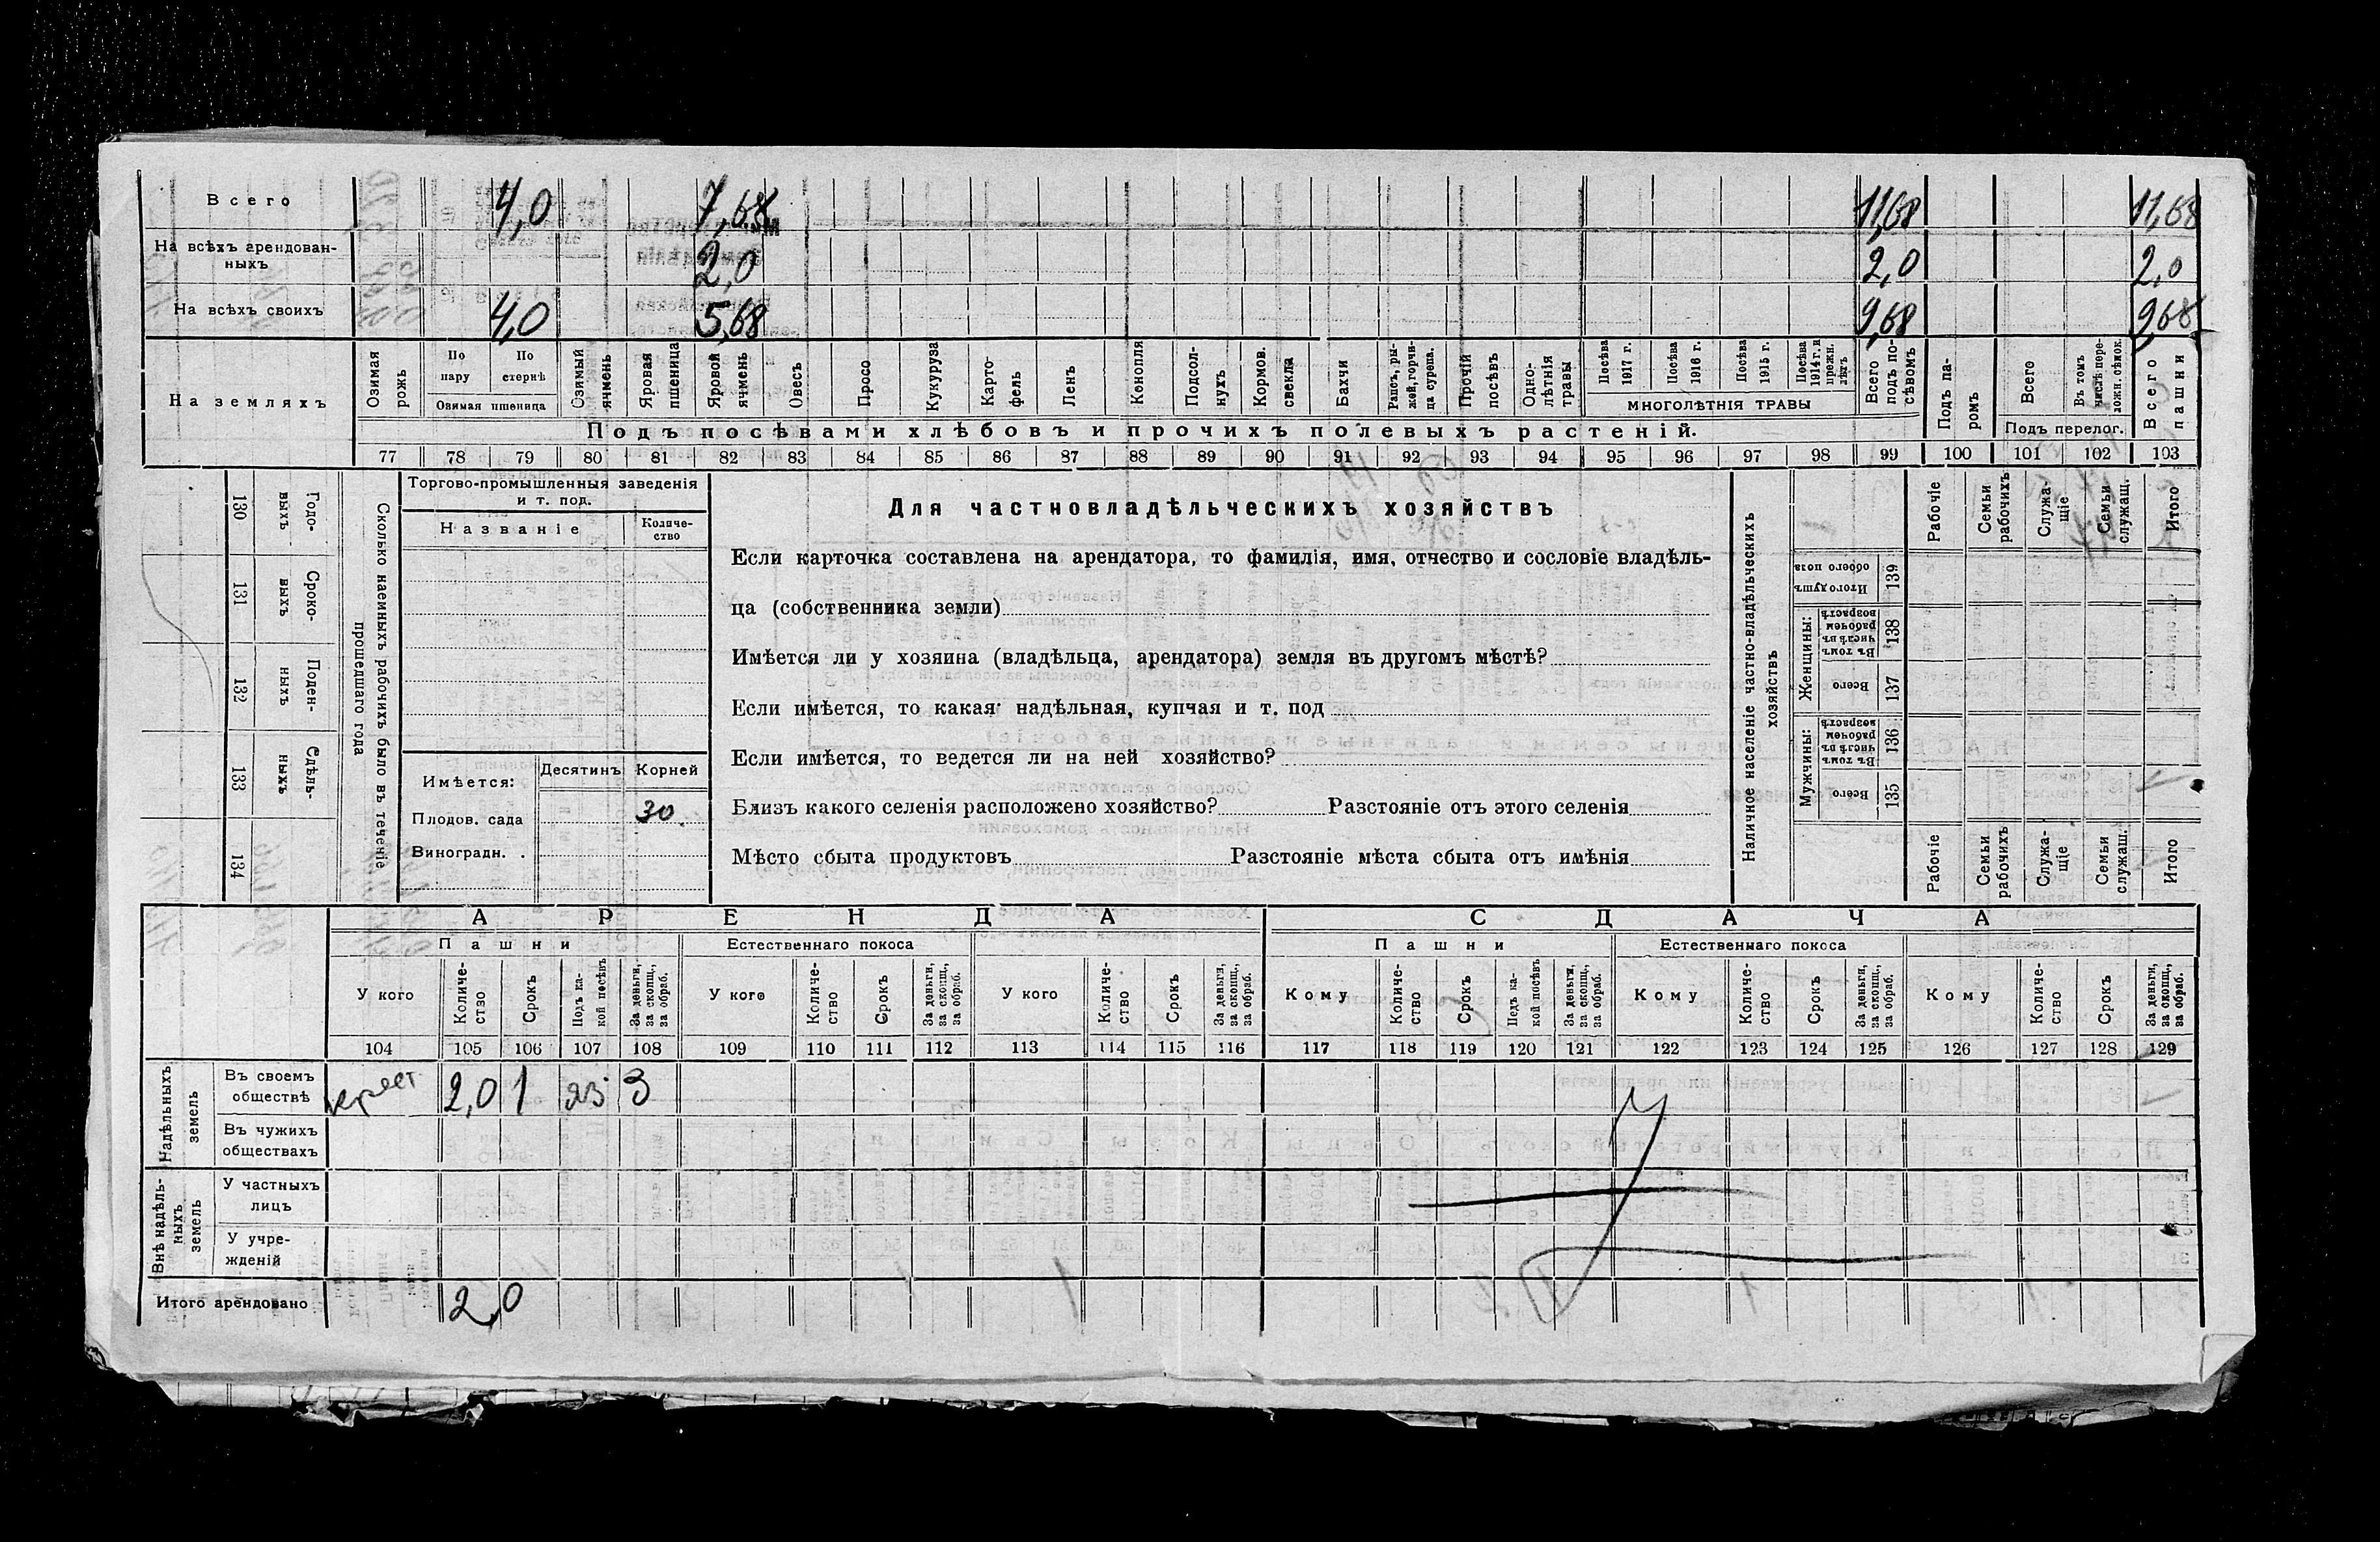 Всего 4,0 7,68 11,68 11,68
На всѣхъ арендован-
ныхъ 2,0 2,0 2,0
На всѣхъ своихъ 4,0 5,68 9,68 9,68
На земляхъ
Озимая рожь
По пару
По стернѣ
Озимая пшеница
Озимый ячмень
Яровая пшеница
Яровой ячмень
Овесъ
Просо
Кукуруза
Карто-
фель
Ленъ
Конопля
Подсол-
нухъ
Кормов. свекла
Бахчи
Рапсъ, ры-
жей, горчи-
ца сурепа.
Прочій посѣвъ
Одно-
лѣтнія
травы
Посѣва 1917 г.
Посѣва 1916 г.
Посѣва 1915 г.
Посѣва 1914 г. и прежн. лѣтъ
МНОГОЛѢТНІЯ ТРАВЫ
Всего подъ по-
сѣвомъ
Подъ па-
ромъ
Всего
Въ томъ числѣ пере-
ложн. сѣнок.
Подъ перелог.
Всего пашни
Подъ посѣвами хлѣбовъ и прочихъ полевыхъ растеній.
77 78 79 80 81 82 83 84 85 86 87 88 89 90 91 92 93 94 95 96 97 98 99 100 101 102 103
130 Годо-
выхъ
131 Сроко-
выхъ
132 Поден-
ныхъ
133 Сдѣль-
ныхъ
134
Сколько наемныхъ рабочихъ было въ теченіе
прошедшаго года
Торгово-промышленныя заведенія
и т. под.
Названіе
Количе-
ство
Имѣется: Десятинъ Корней
Плодов. сада 30
Виноградн. .
Для частновладѣльческихъ хозяйствъ
Если карточка составлена на арендатора, то фамилія, имя, отчество и сословіе владѣль-
ца (собственника земли)
Имѣется ли у хозяина (владѣльца, арендатора) земля въ другомъ мѣстѣ?
Если имѣется, то какая: надѣльная, купчая и т. под
Если имѣется, то ведется ли на ней хозяйство?
Близъ какого селенія расположено хозяйство? Разстояніе отъ этого селенія
Мѣсто сбыта продуктовъ Разстояніе мѣста сбыта отъ имѣнія
Наличное населеніе частно-владѣльческихъ
хозяйствъ
Рабочіе
Семьи рабочихъ
Служа-
щіе
Семьи служащ.
Итого
Итого душъ обоего пола 139
Женщины:
Въ томъ числѣ въ рабочем возрастѣ 138
Всего 137
Мужчины:
Въ томъ числѣ въ рабочем возрастѣ 136
Всего 135
Рабочіе
Семьи рабочихъ
Служа-
щіе
Семьи служащ.
Итого
АРЕНДА СДАЧА
Пашни Естественнаго покоса Пашни Естественнаго покоса
У кого
Количе-
ство
Срокъ
Подъ ка-
кой посѣвъ
За деньги,
за скопщ.,
за обраб.
У кого
Количе-
ство
Срокъ
За деньги,
за скопщ.,
за обраб.
У кого
Количе-
ство
Срокъ
За деньги,
за скопщ.,
за обраб.
Кому
Количе-
ство
Срокъ
Подъ ка-
кой посѣвъ
За деньги,
за скопщ.,
за обраб.
Кому
Количе-
ство
Срокъ
За деньги,
за скопщ.,
за обраб.
Кому
Количе-
ство
Срокъ
За деньги,
за скопщ.,
за обраб.
104 105 106 107 108 109 110 111 112 113 114 115 116 117 118 119 120 121 122 123 124 125 126 127 128 129
Надѣльныхъ
земель
Въ своемъ
обществѣ крест 2,0 1 3
Въ чужихъ
обществахъ
Внѣ надѣль-
ныхъ
земель
У частныхъ
лицъ
У учре-
жденій
Итого арендовано 2,0